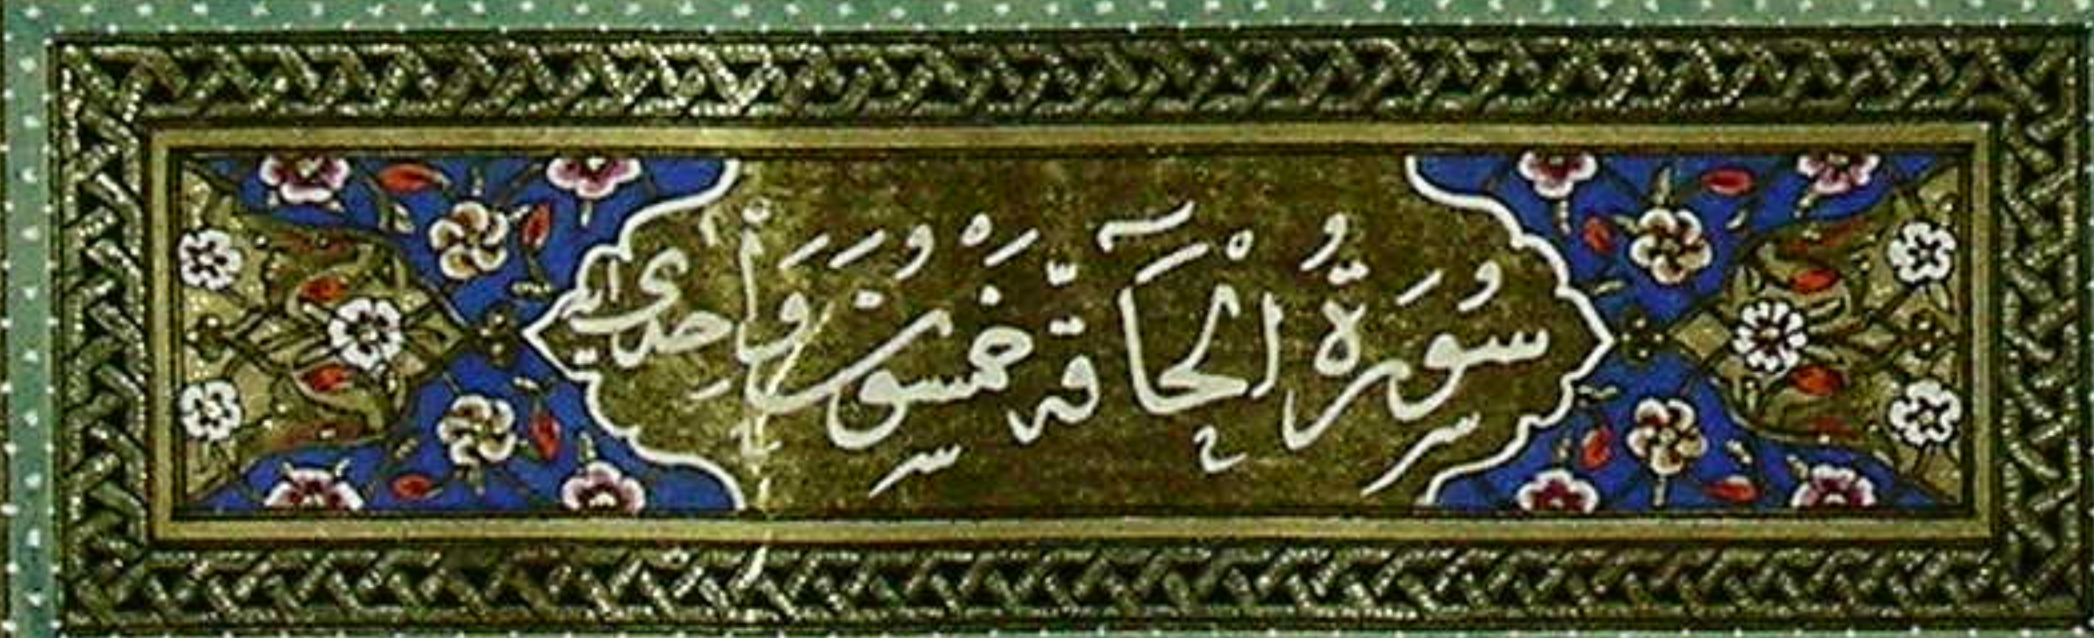 سُورَةُ الْحَآقَّةِ خَمْسُونَ وَاِحْدٰى اٰيَة